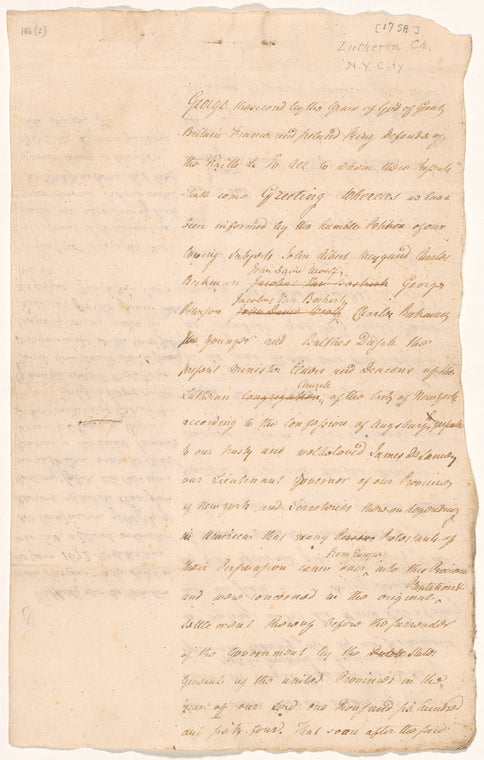 196 (2)
[1758]
Lutheran Ch.
N Y City
George the second by the Grace of God of Great
Britain France and Ireland King Defender of
the Faith &c To All to whom these Presents
shall come Greeting Whereas we have
been informed by the humble Petition of our
loving subjects John Albert Weygand Charles
John David Wolff
Beekman Jacobus Van Boskirk George
Jacobus Van Boskirk
Peterson John David Wolff Charles Beekman
the younger and Balthes Dash the
present Minister Elders and Deacons of the
Church
Lutheran Congregation of the City of New York
according to the Confession of Augsburgh presented
to our trusty and welbeloved James De Lancey
our Lieutenant Governor of our Province
of New york and Territories thereon depending
in America that many Persons Protestants of
from Europe
their Perswasion came over into this Province
Plantation &
and were concerned in the original
settlement thereof before the surrender
of the Government by the Dutch States
General of the united Provinces in the
year of our Lord one thousand six hundred
and sixty four. That soon after the said